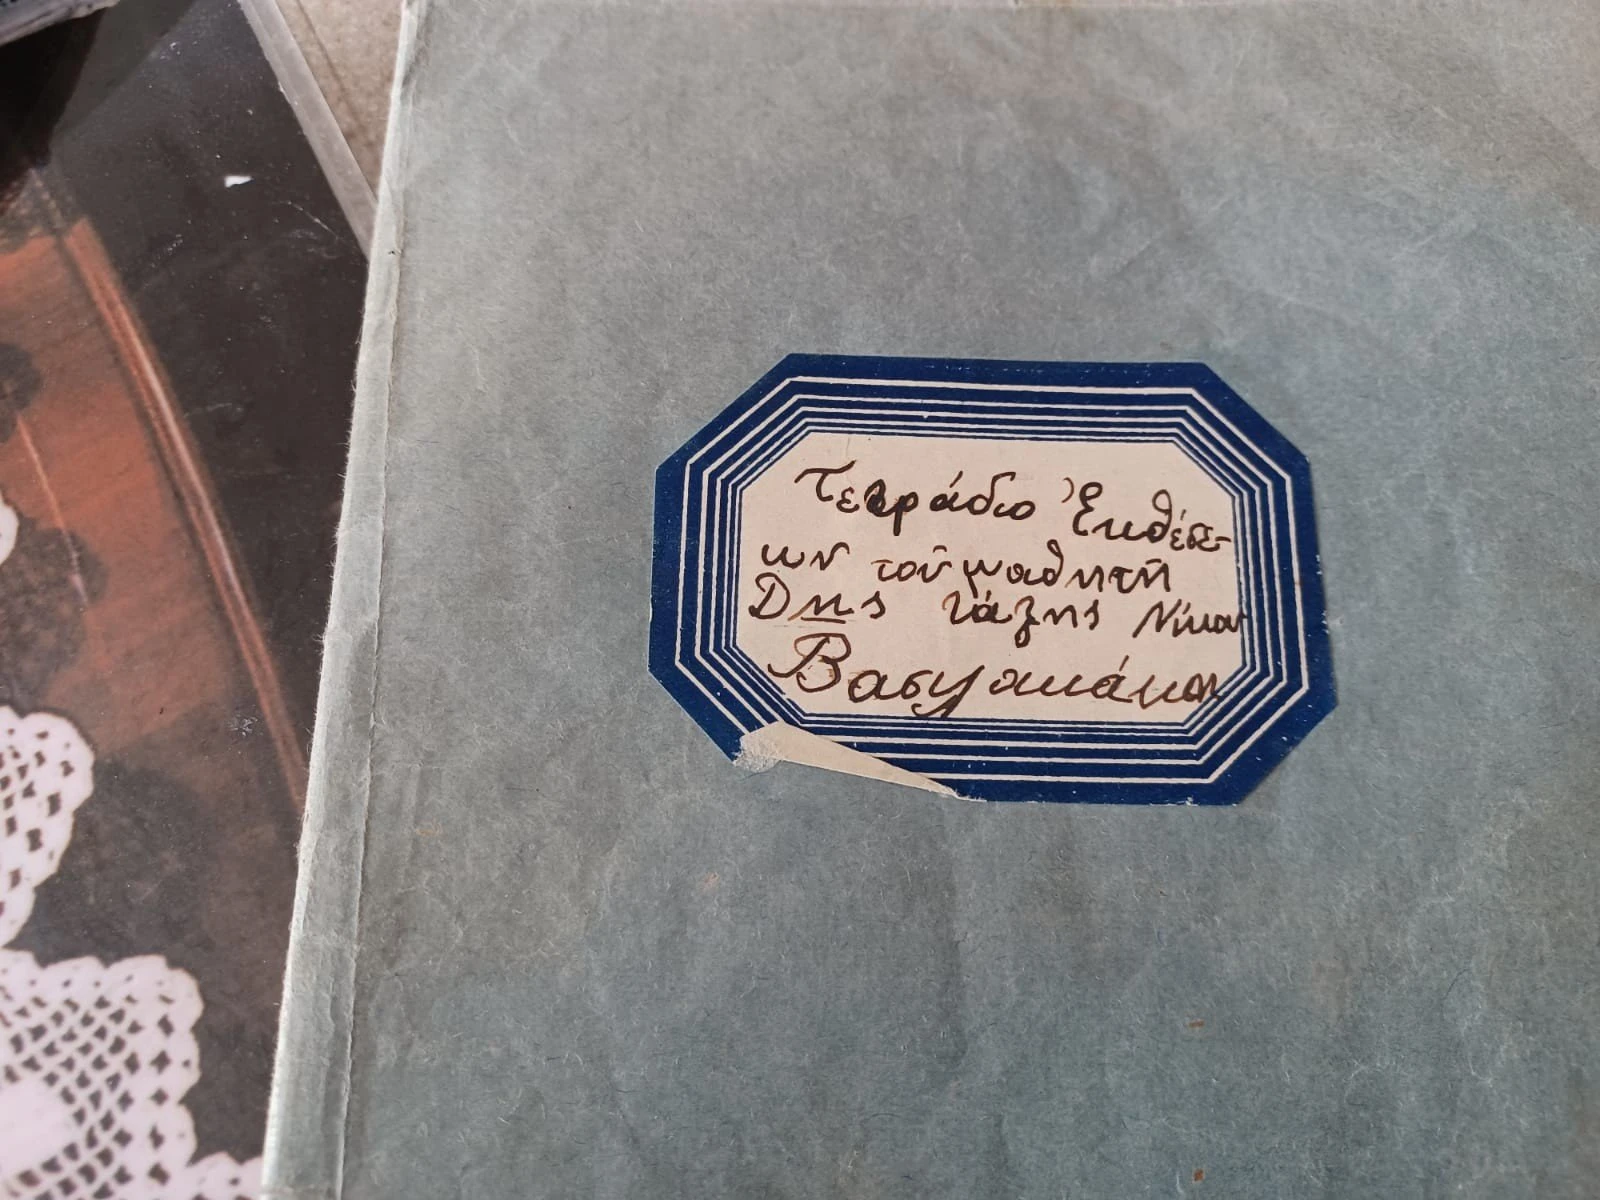 Τετράδιο Ἐκθέσε-
ων τοῦ μαθητῆ
Δης τάξης Νίκου
Βασιλακάκου